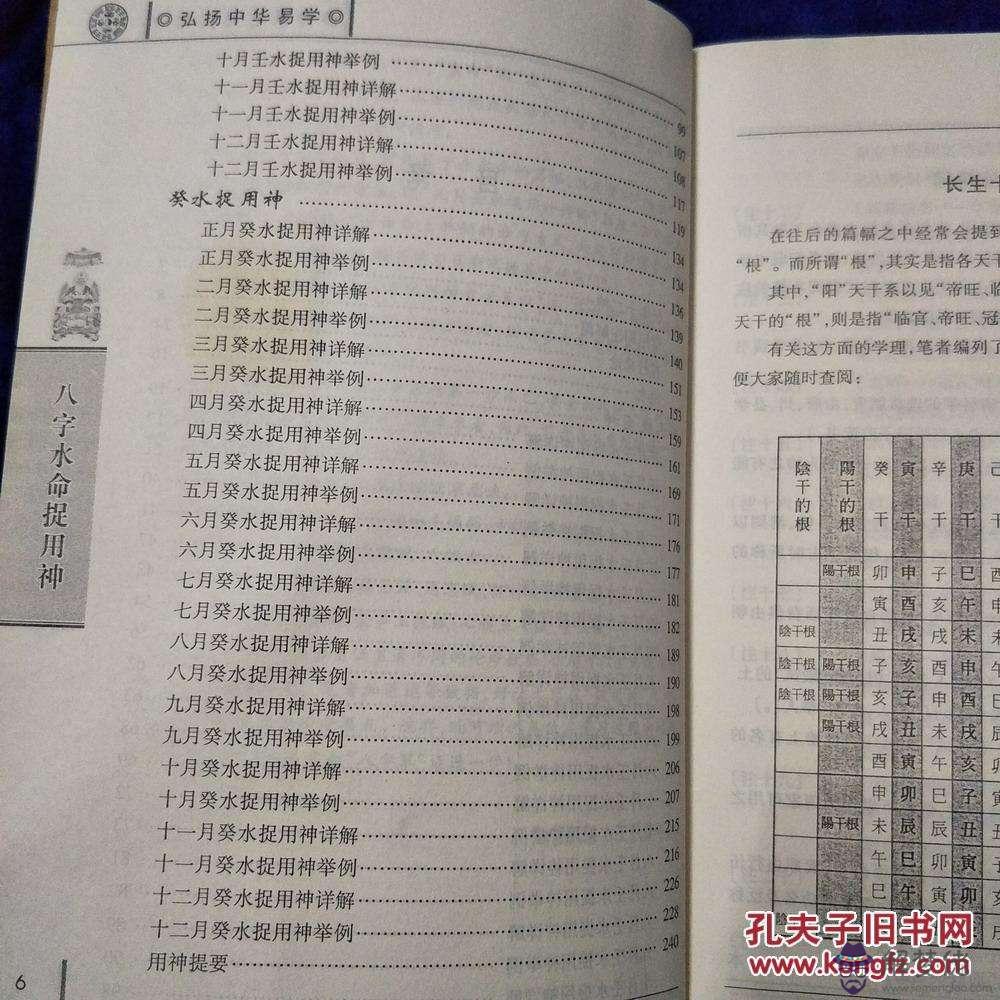 弘扬中华易学
十月壬水捉用神举例 …… 99
十一月壬水捉用神详解 …… 107
十一月壬水捉用神举例 …… 108
十二月壬水捉用神详解 …… 117
十二月壬水捉用神举例 …… 119
癸水捉用神 …… 134
正月癸水捉用神详解 …… 134
正月癸水捉用神举例 …… 136
二月癸水捉用神详解 …… 139
二月癸水捉用神举例 …… 140
三月癸水捉用神详解 …… 151
三月癸水捉用神举例 …… 153
四月癸水捉用神详解 …… 159
四月癸水捉用神举例 …… 161
五月癸水捉用神详解 …… 169
五月癸水捉用神举例 …… 171
六月癸水捉用神详解 …… 176
六月癸水捉用神举例 …… 177
七月癸水捉用神详解 …… 181
七月癸水捉用神举例 …… 182
八月癸水捉用神详解 …… 189
八月癸水捉用神举例 …… 190
九月癸水捉用神详解 …… 198
九月癸水捉用神举例 …… 199
十月癸水捉用神详解 …… 206
十月癸水捉用神举例 …… 207
十一月癸水捉用神详解 …… 215
十一月癸水捉用神举例 …… 216
十二月癸水捉用神详解 …… 226
十二月癸水捉用神举例 …… 228
用神提要 …… 240
八字水命捉用神
6
长生十
在往后的篇幅之中经常会提到
“根”。而所谓“根”,其实是指各天干
其中,“阳”天干系以见“帝旺、临
天干的“根”,则是指“临官、帝旺、冠
有关这方面的学理,笔者编列了
便大家随时查阅:
陰干的根 陽干的根 癸干 寅干 辛干 庚干 己
陽干根 卯 申 子 巳 酉
寅 酉 亥 午 申
陰干根 丑 戌 戌 未 未
陰干根 陽干根 子 亥 酉 申 午
陰干根 陽干根 亥 子 申 酉 巳
陽干根 戌 丑 未 戌 辰
酉 寅 午 亥 卯
申 卯 巳 子
陽干根 未 辰 辰 丑 丑
午 巳 卯 寅 子
巳 午 寅 卯
孔夫子旧书网
www.kongfz.com
www.jiemengleo.com